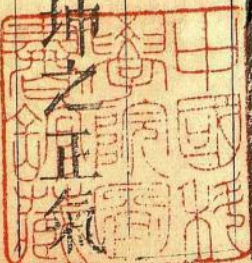 中國科
學院圖
書館藏
坤之正氣